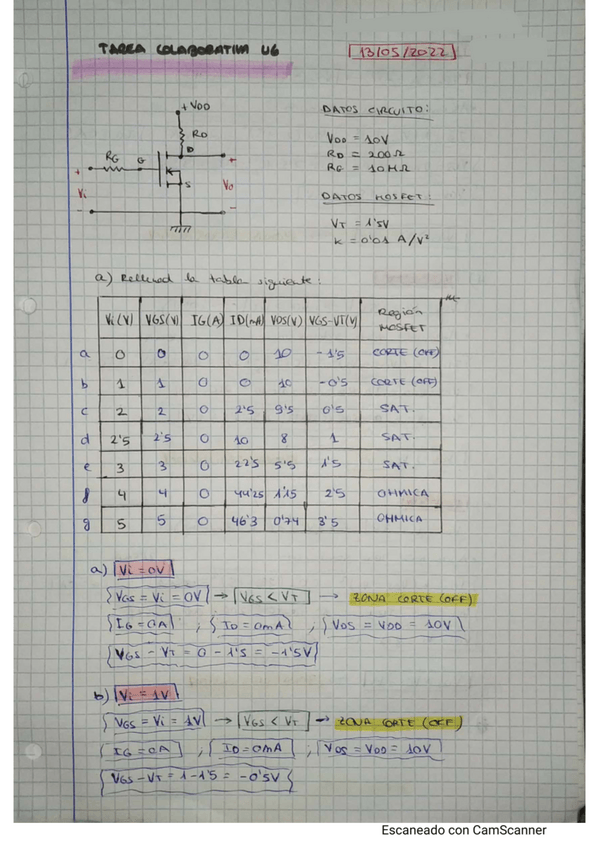 TAREA COLABORATIVA U6
13/05/2022
+ VDD
RD
D
RG
G
S
+
Vi
-
+
Vo
-
DATOS CIRCUITO:
VDD = 10V
RD = 200Ω
RG = 10MΩ
DATOS MOSFET:
VT = 1'5V
K = 0'01 A/V²
a) Rellenad la tabla siguiente:
Vi(V) VGS(V) IG(A) ID(mA) VDS(V) VGS-VT(V) Región MOSFET
a 0 0 0 0 10 -1'5 CORTE (OFF)
b 1 1 0 0 10 -0'5 CORTE (OFF)
c 2 2 0 2'5 9'5 0'5 SAT.
d 2'5 2'5 0 10 8 1 SAT.
e 3 3 0 22'5 5'5 1'5 SAT.
f 4 4 0 44'25 1'15 2'5 OHMICA
g 5 5 0 46'3 0'74 3'5 OHMICA
a) Vi = 0V
VGS = Vi = 0V → VGS < VT → ZONA CORTE (OFF)
IG = 0A ; ID = 0mA , VDS = VDD = 10V
VGS - VT = 0 - 1'5 = -1'5V
b) Vi = 1V
VGS = Vi = 1V → VGS < VT → ZONA CORTE (OFF)
IG = 0A , ID = 0mA , VDS = VDD = 10V
VGS - VT = 1 - 1'5 = -0'5V
Escaneado con CamScanner